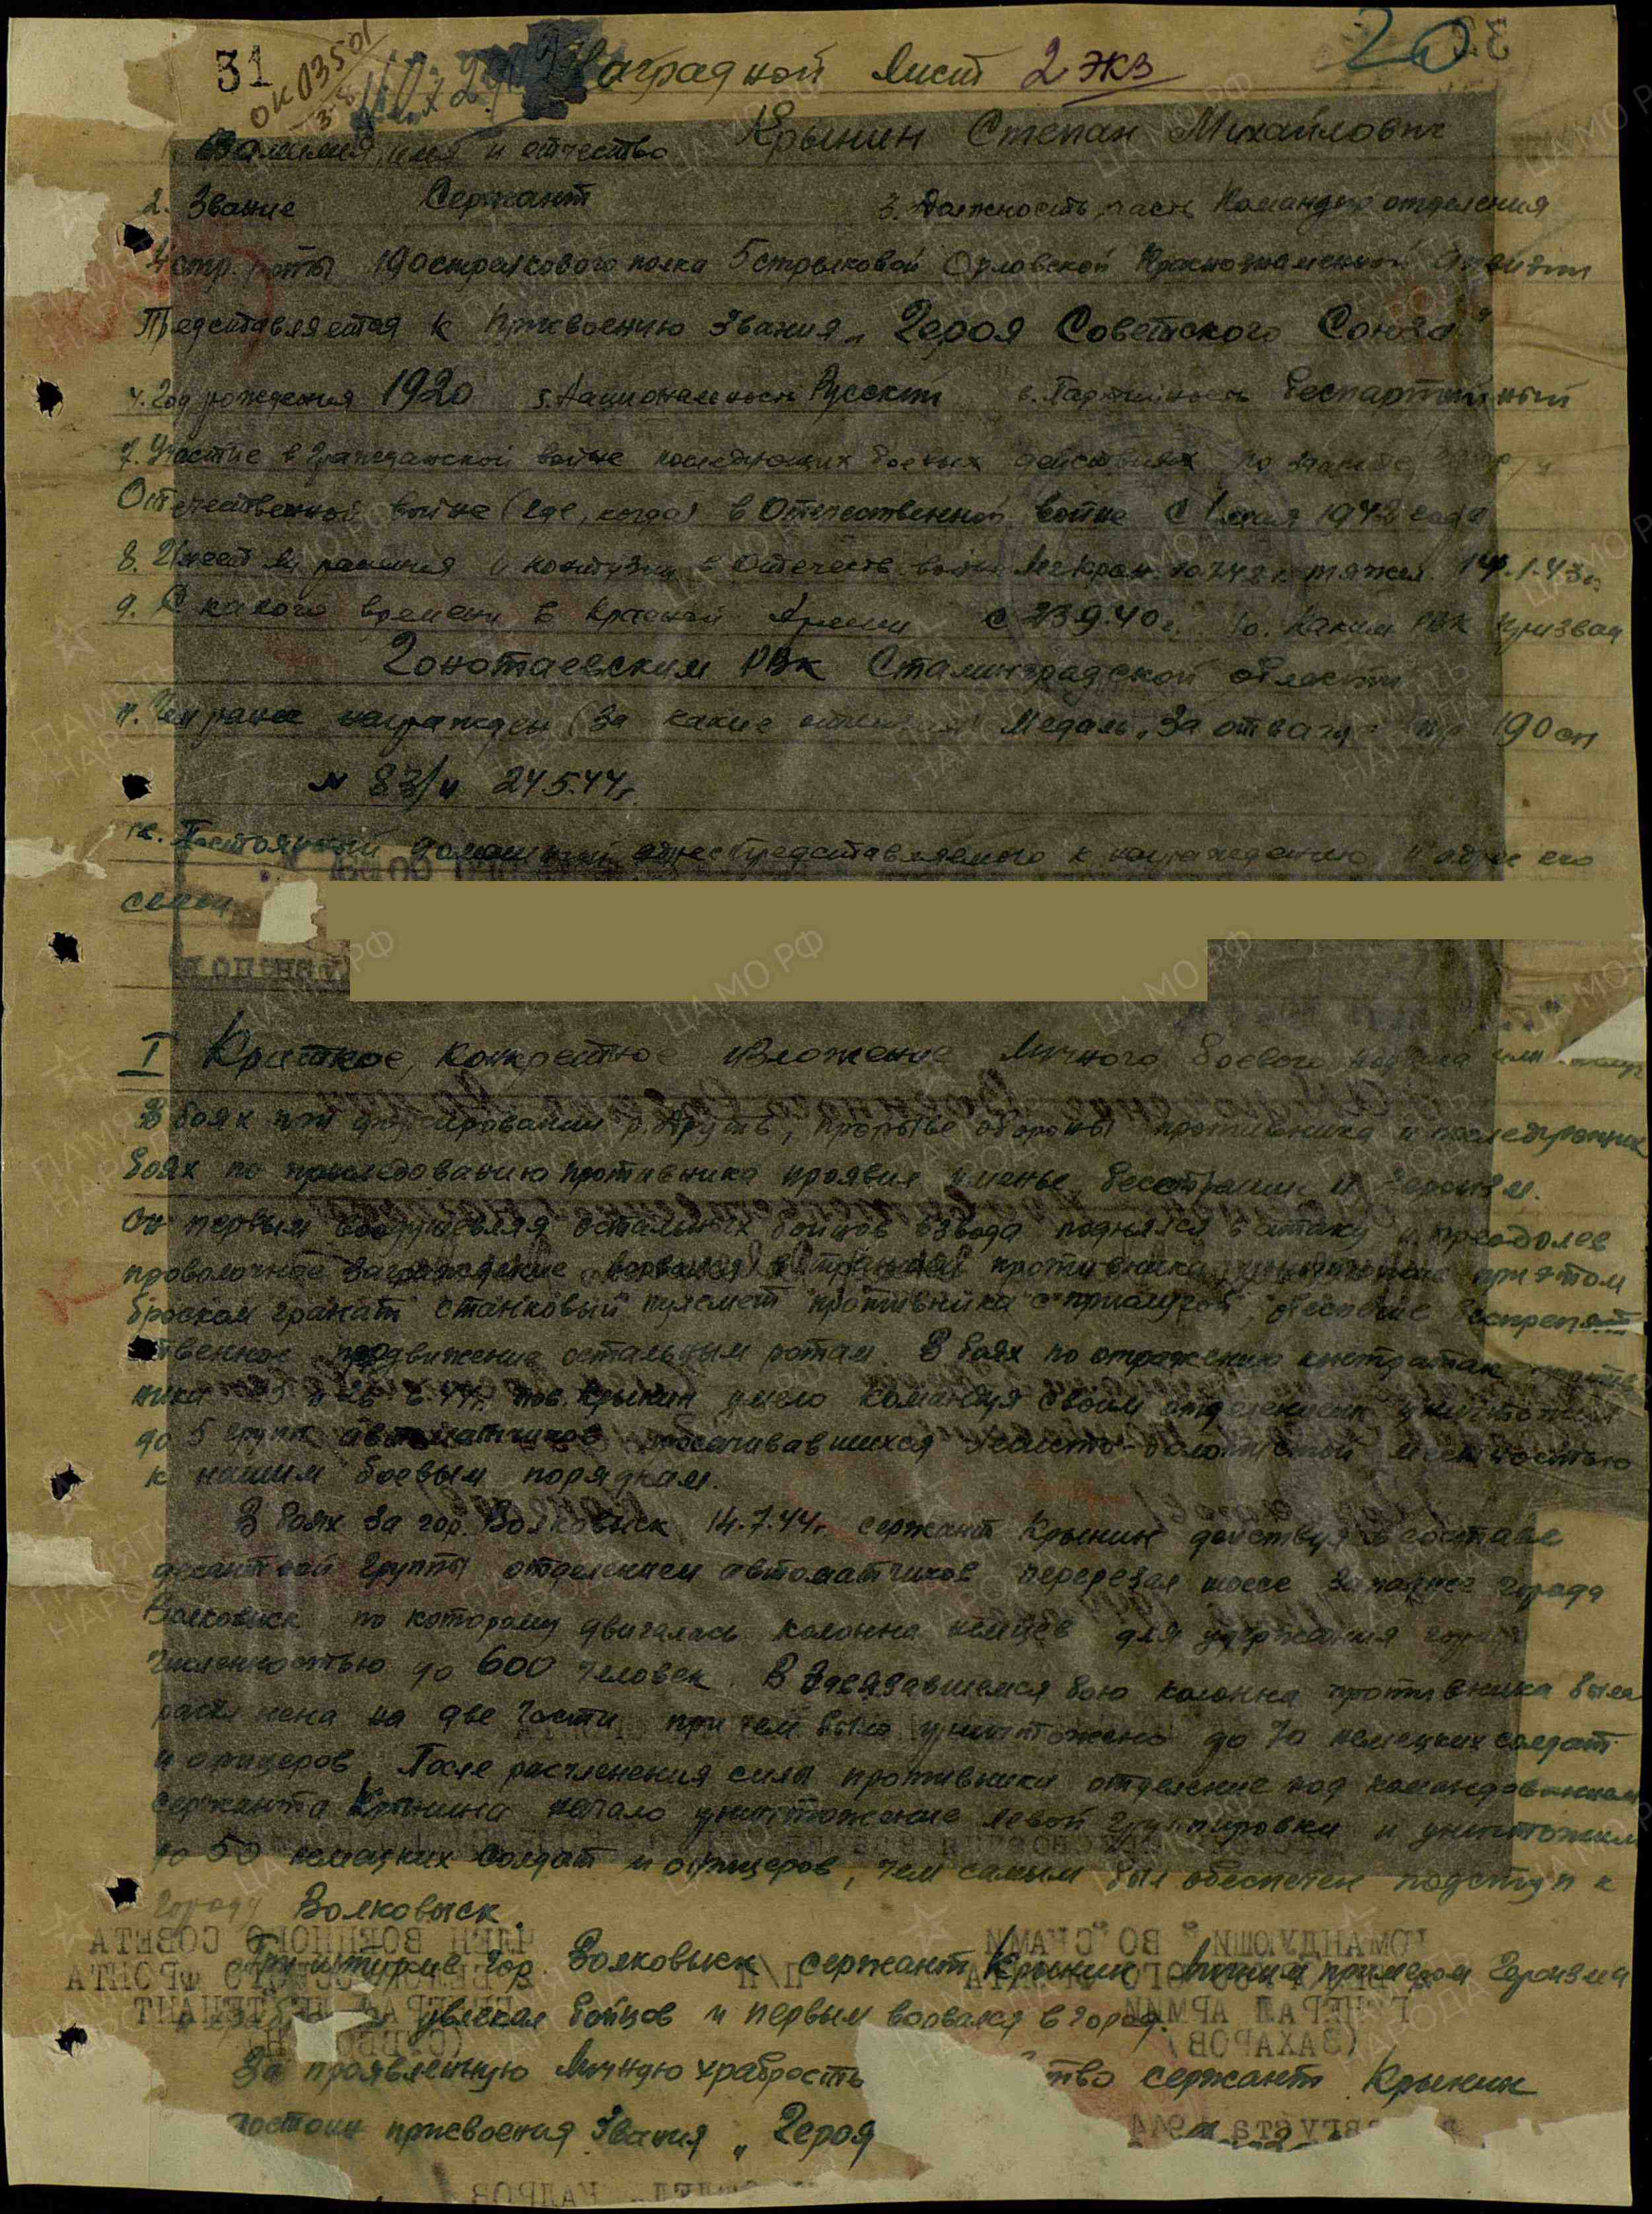 31
ОК 03501
Наградной Лист 2 экз
20
Фамилия, имя и отчество Крынин Степан Михайлович
2. Звание Сержант 3. Должность, часть Командир отделения
4 стр. роты 190 стрелкового полка 5 стрелковой Орловской Краснознаменной дивизии
Представляется к присвоению звания „Героя Советского Союза"
4. Год рождения 1920 5. Национальность Русский 6. Партийность беспартийный
7. Участие в гражданской войне последующих боевых действиях по защите
Отечественной войне (где, когда) в Отечественной войне с 1 мая 1942 года
8. Имеет ли ранения и контузии в Отечеств. войне Легкоран. 10.7.42 г. тяжел. 14.1.43 г.
9. С какого времени в Красной Армии с 23.9.40 г. 10. Каким РВК призван
Гонотаевским РВК Сталинградской области
11. Чем ранее награжден (за какие отличия) Медаль „За отвагу" пр 190 сп
№ 83/н 24.5.44 г.
12. Постоянный домашний адрес представляемого к награждению и адрес его
семьи
I Краткое, конкретное изложение личного боевого подвига или
В боях при форсировании р. Друть, прорыве обороны противника и последующих
боях по преследованию противника проявил уменье, бесстрашие и героизм.
Он первым воодушевляя остальных бойцов взвода поднялся в атаку и преодолев
проволочное заграждение ворвался в траншеи противника, уничтожив при этом
броском гранат станковый пулемет противника с прислугой, обеспечив беспрепят
ственное продвижение остальным ротам. В боях по отражению контратак против
ника 25 и 26.6.44 г. тов. Крынин умело командуя своим отделением уничтожил
до 5 групп автоматчиков просачивавшихся лесисто-болотистой местностью
к нашим боевым порядкам.
В боях за гор. Волковыск 14.7.44 г. сержант Крынин действуя в составе
десантной группы отделением автоматчиков перерезал шоссе западнее города
Волковыск по которому двигалась колонна немцев для удержания города
численностью до 600 человек. В завязавшемся бою колонна противника была
расчленена на две части при чем было уничтожено до 70 немецких солдат
и офицеров. После расчленения силы противника отделение под командованием
сержанта Крынина начало уничтожение левой группировки и уничтожили
до 50 немецких солдат и офицеров, чем самым был обеспечен подступ к
городу Волковыск.
При штурме гор. Волковыск сержант Крынин личным примером героизма
увлекал бойцов и первым ворвался в город.
За проявленную личную храбрость ство сержант Крынин
достоин присвоения звания „Героя